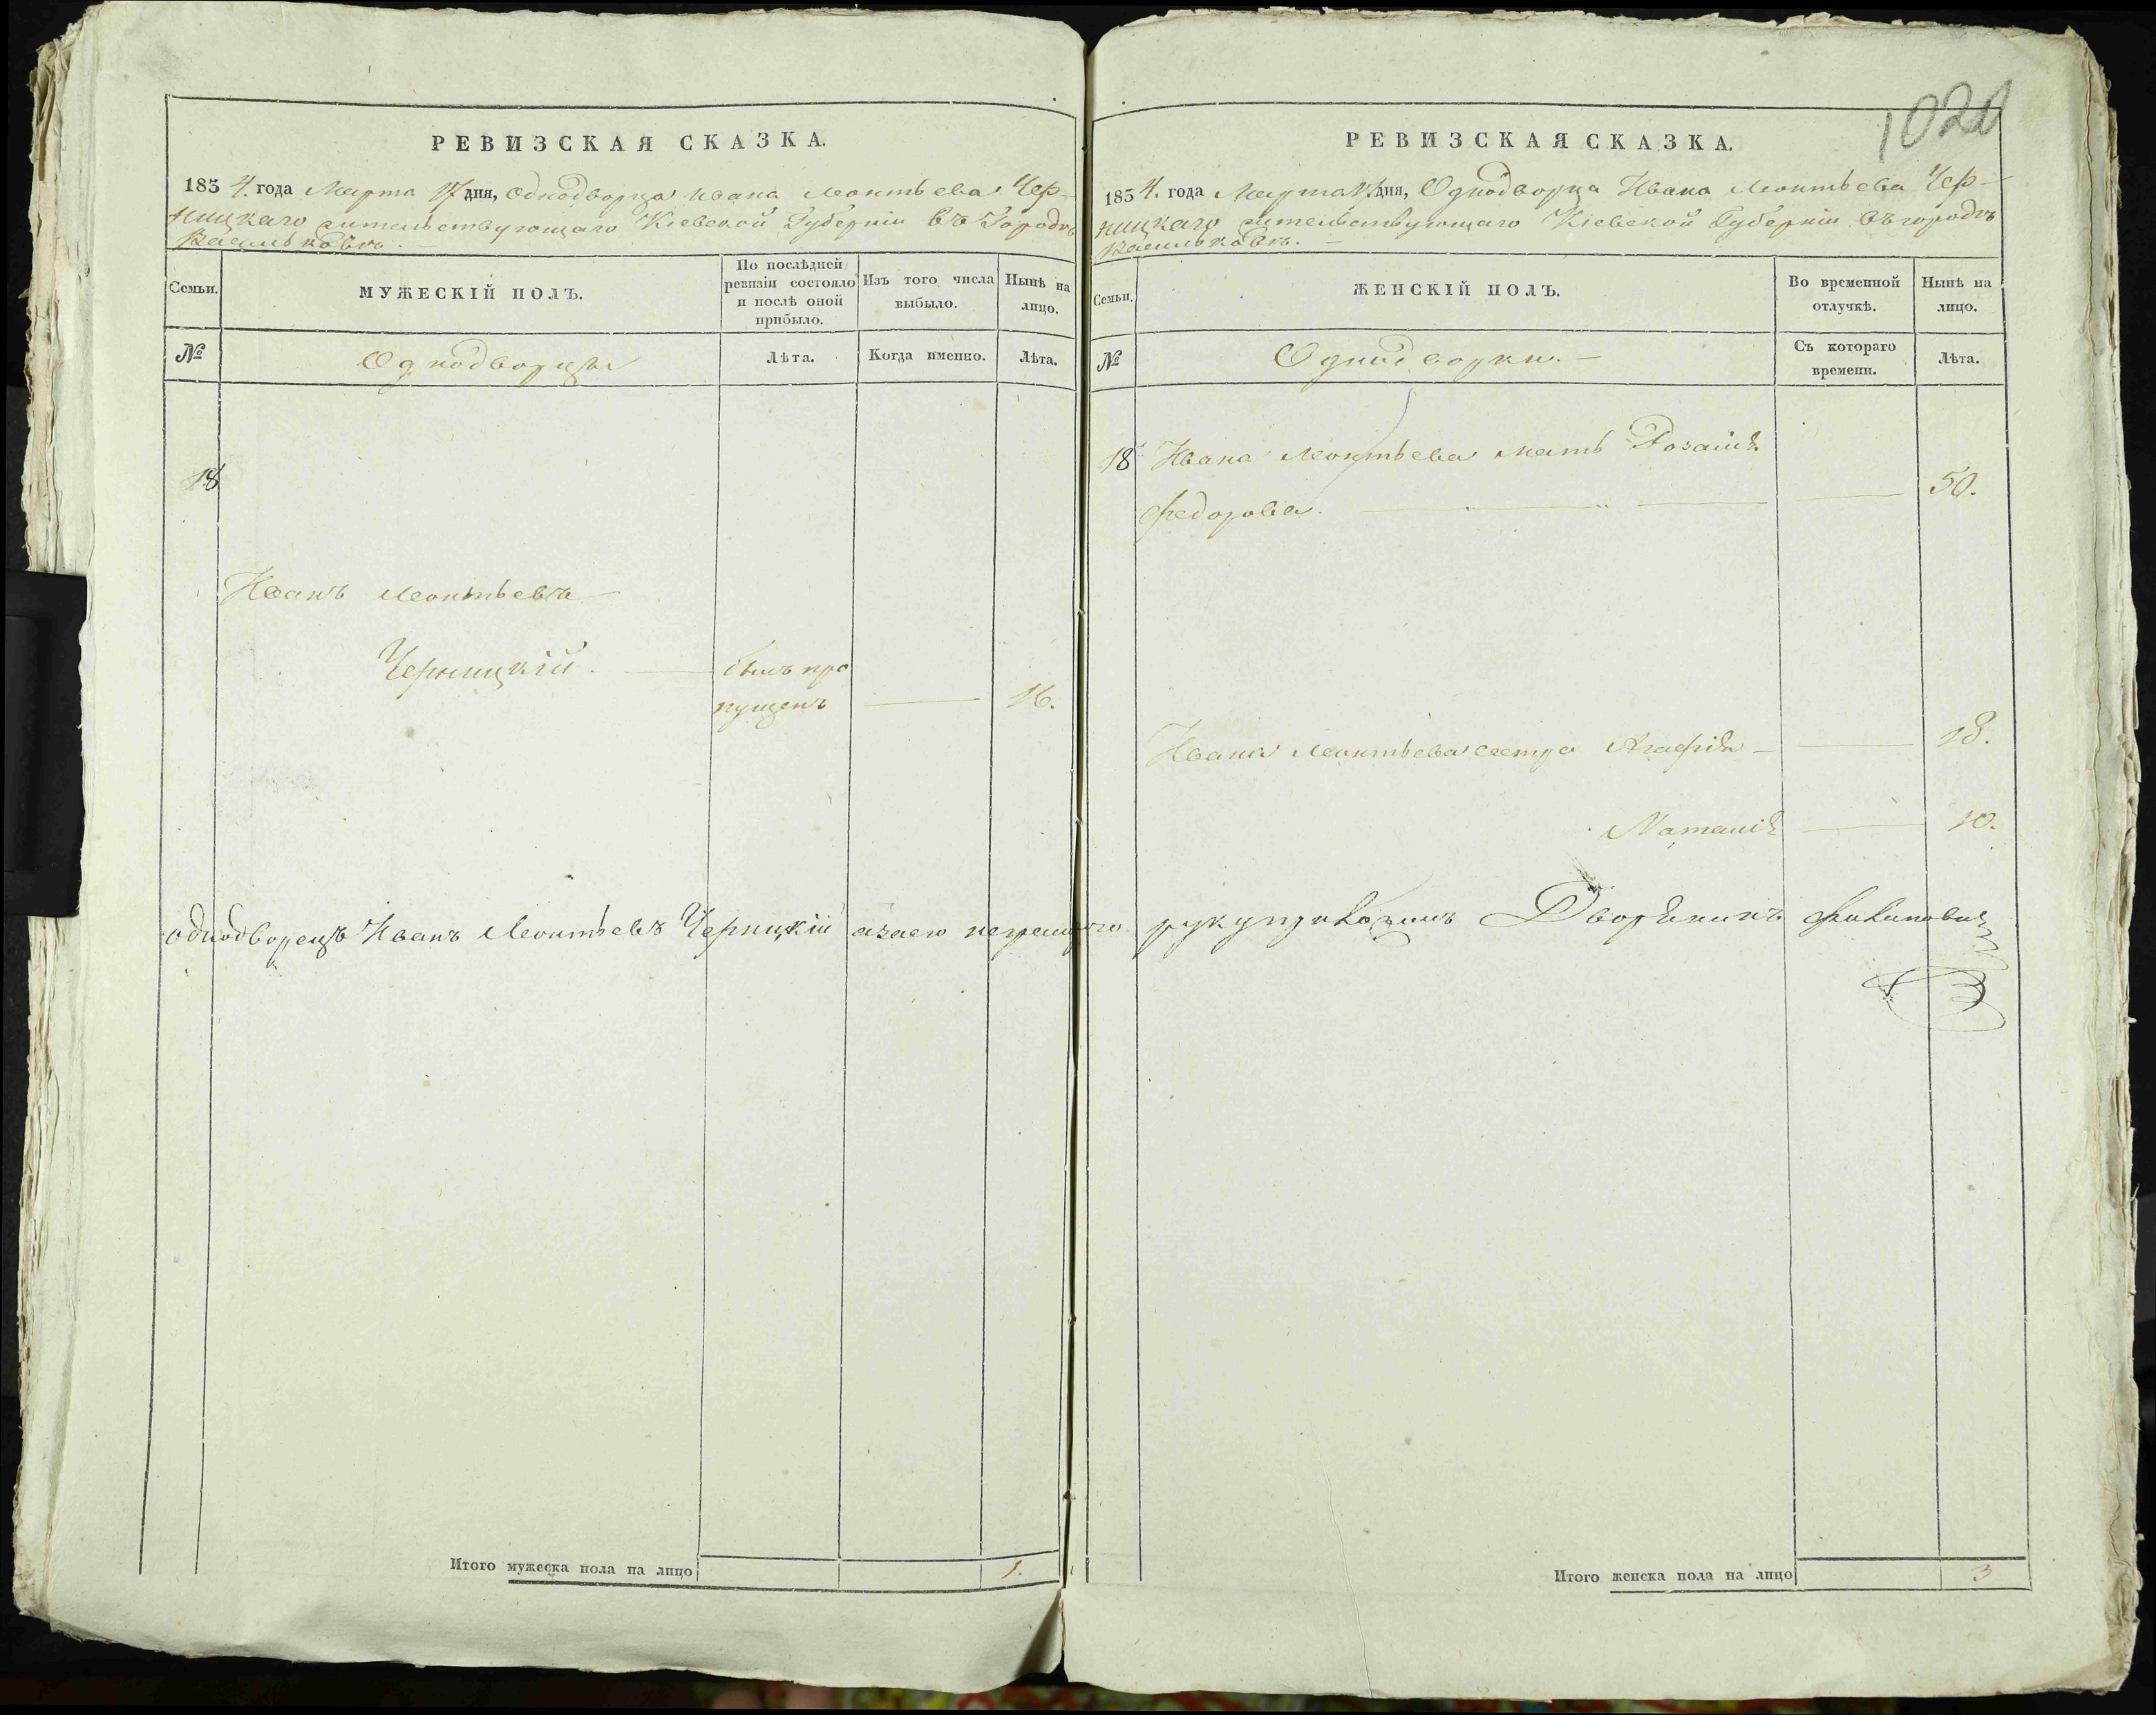 РЕВИЗСКАЯ СКАЗКА.
1834. года Марта 17 дня, Однодворца Ивана Леонтьева Чер-
ницкаго жительствующаго Кіевской Губерніи въ Городѣ
Васильковѣ.
Семьи.
МУЖЕСКІЙ ПОЛЪ.
По послѣдней ревизіи состояло и послѣ оной прибыло.
Изъ того числа выбыло.
Нынѣ на лицо.
№
Однодворцы
Лѣта.
Когда именно.
Лѣта.
18
Иванъ Леонтьевъ
Черницкій. былъ про
пущенъ 16.
Итого мужеска пола на лицо 1.
1020
РЕВИЗСКАЯ СКАЗКА.
1834. года Марта 17 дня, Однодворца Ивана Леонтьева Чер-
ницкаго жительствующаго Кіевской Губерніи въ городѣ
Васильковѣ.
Семьи.
ЖЕНСКІЙ ПОЛЪ.
Во временной отлучкѣ.
Нынѣ на лицо.
№
Однодворки.
Съ котораго времени.
Лѣта.
18 Ивана Леонтьева мать Розалія
Федорова. 50.
Ивана Леонтьева сестра Агафія 18.
Наталія 10.
однодворецъ Иванъ Леонтьевъ Черницкій азаего неграмотного рукуприложилъ Дворянинъ
Итого женска пола на лицо 3